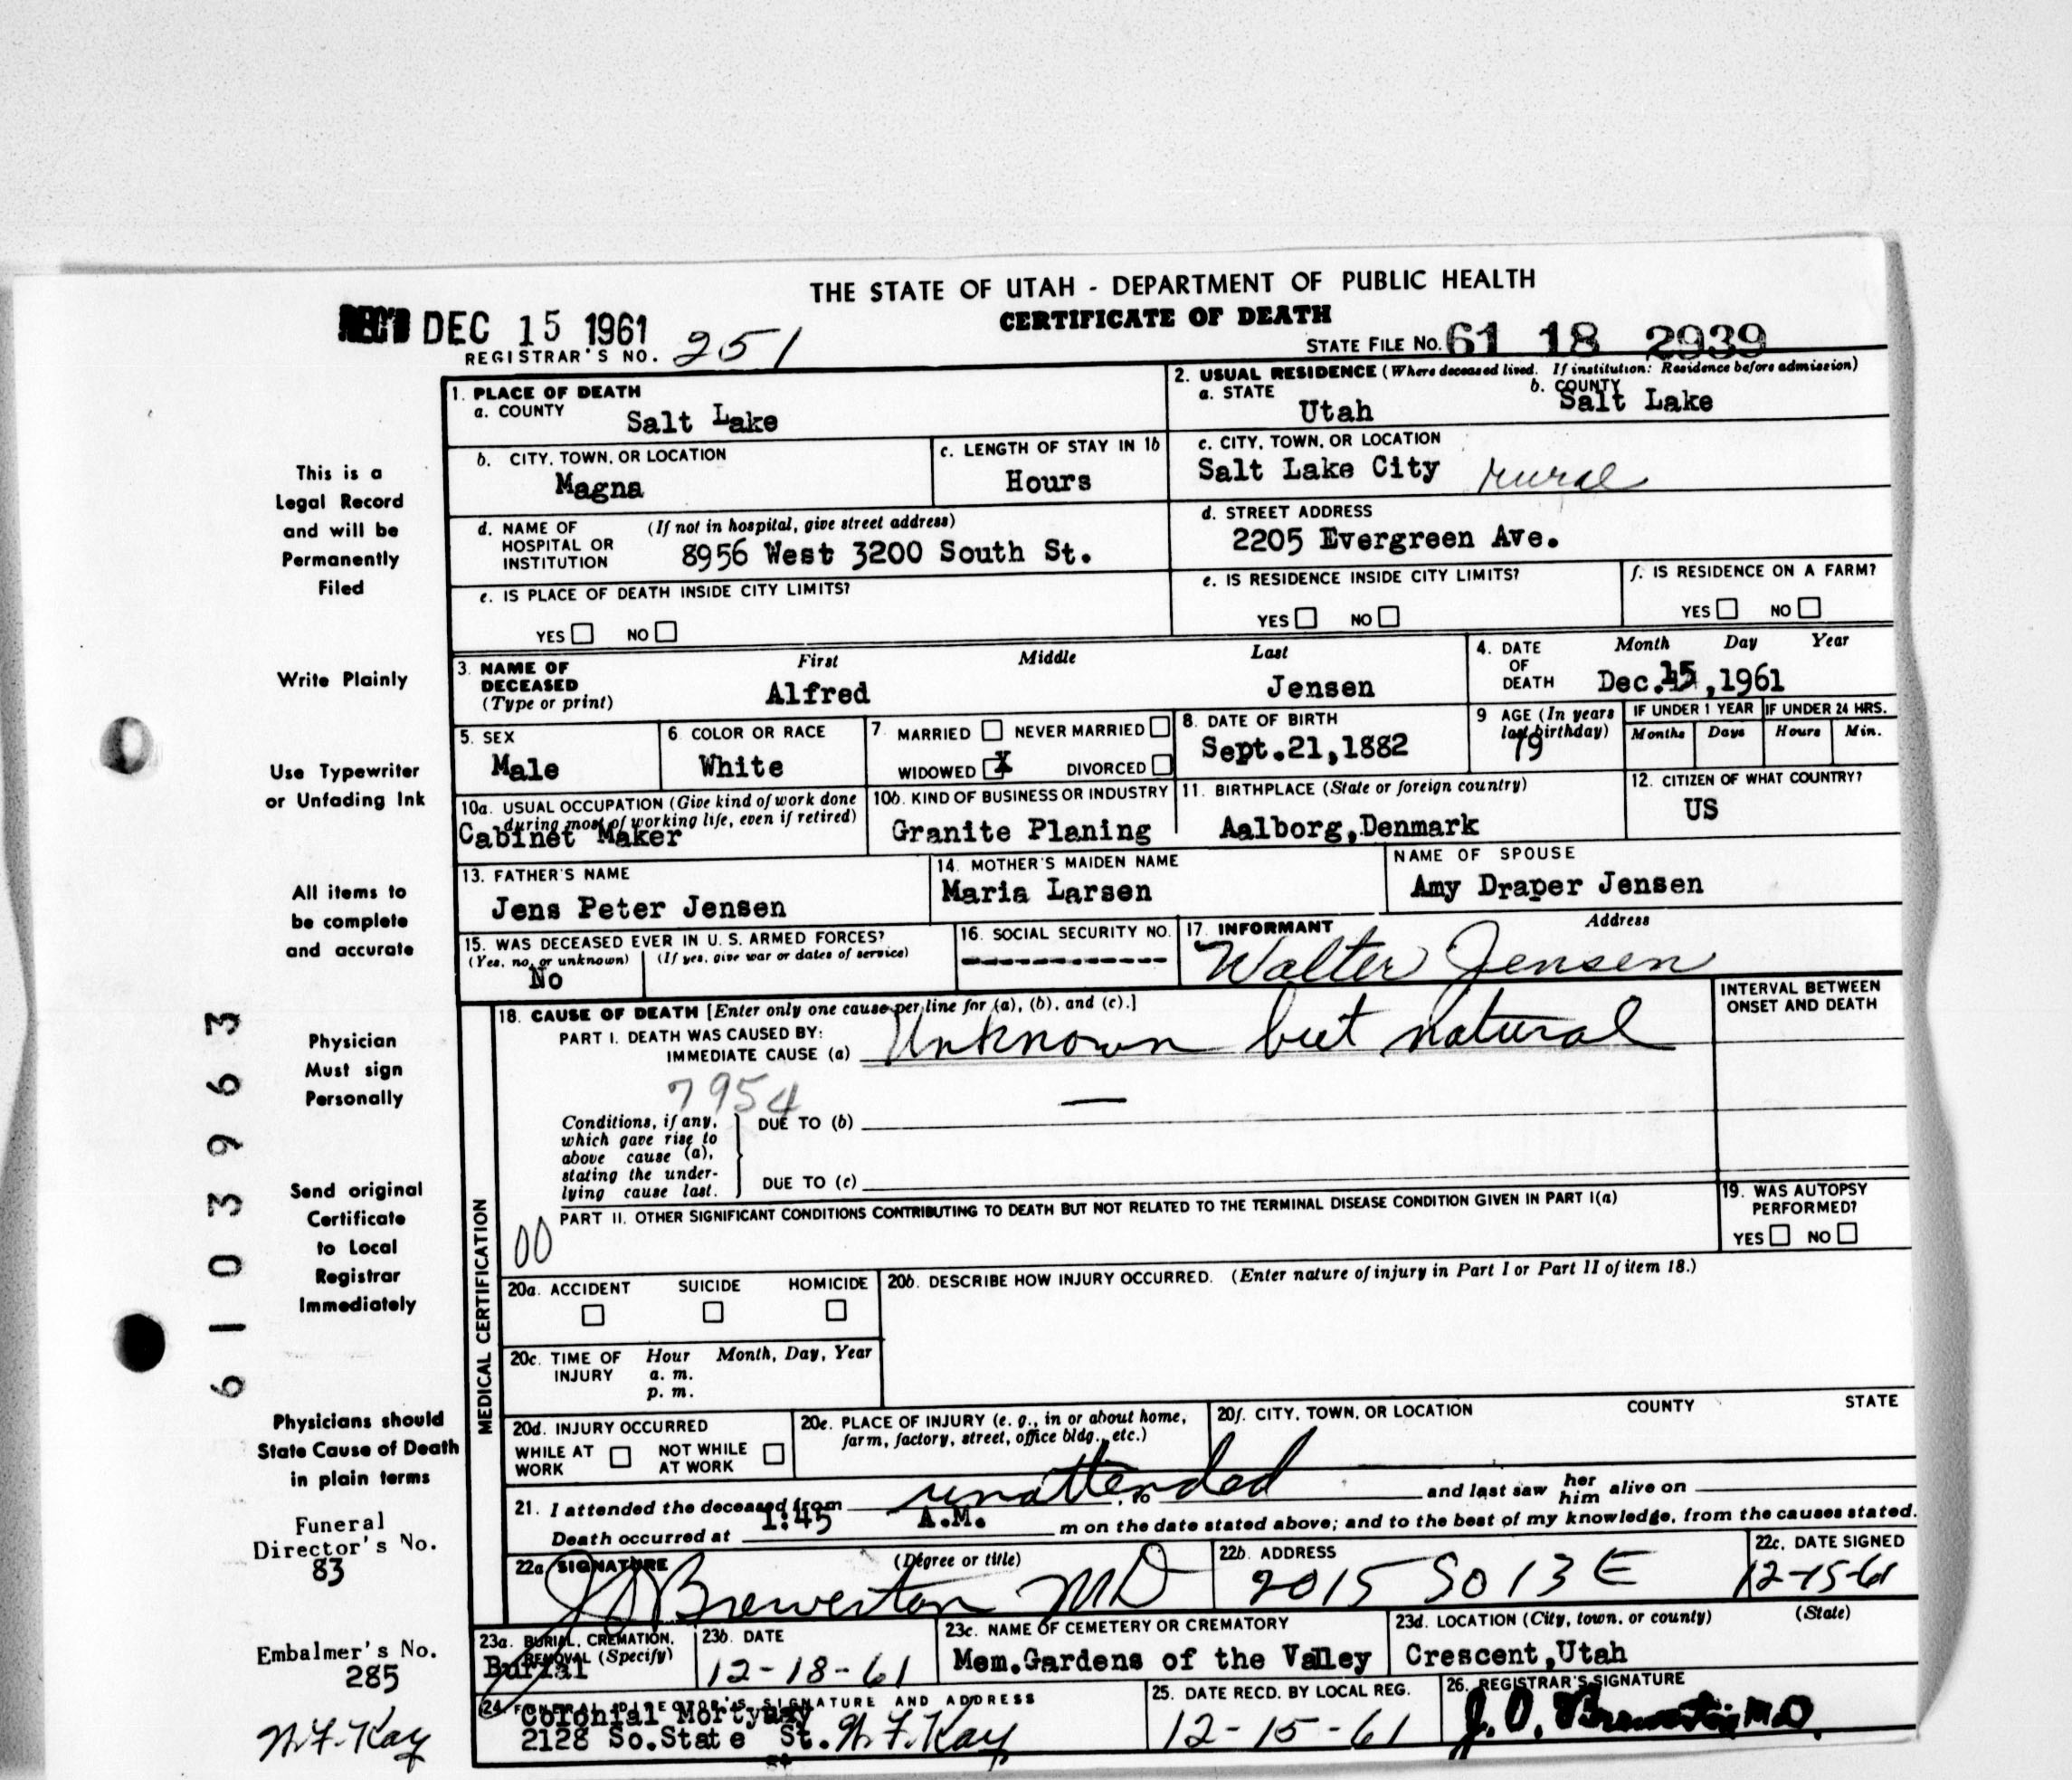 THE STATE OF UTAH - DEPARTMENT OF PUBLIC HEALTH
CERTIFICATE OF DEATH
REC'D DEC 15 1961
REGISTRAR'S NO. 251
STATE FILE No. 61 18 2939
1. PLACE OF DEATH
a. COUNTY Salt Lake
2. USUAL RESIDENCE (Where deceased lived. If institution: Residence before admission)
a. STATE Utah b. COUNTY Salt Lake
b. CITY, TOWN, OR LOCATION Magna
c. LENGTH OF STAY IN 1b Hours
c. CITY, TOWN, OR LOCATION
Salt Lake City rural
d. NAME OF HOSPITAL OR INSTITUTION (If not in hospital, give street address)
8956 West 3200 South St.
d. STREET ADDRESS
2205 Evergreen Ave.
e. IS PLACE OF DEATH INSIDE CITY LIMITS?
YES NO
e. IS RESIDENCE INSIDE CITY LIMITS?
YES NO
f. IS RESIDENCE ON A FARM?
YES NO
3. NAME OF DECEASED (Type or print)
First Middle Last
Alfred Jensen
4. DATE OF DEATH Month Day Year
Dec. 15, 1961
5. SEX
Male
6. COLOR OR RACE
White
7. MARRIED NEVER MARRIED
WIDOWED X DIVORCED
8. DATE OF BIRTH
Sept.21,1882
9 AGE (In years last birthday)
79
IF UNDER 1 YEAR IF UNDER 24 HRS.
Months Days Hours Min.
10a. USUAL OCCUPATION (Give kind of work done during most of working life, even if retired)
Cabinet Maker
10b. KIND OF BUSINESS OR INDUSTRY
Granite Planing
11. BIRTHPLACE (State or foreign country)
Aalborg,Denmark
12. CITIZEN OF WHAT COUNTRY?
US
13. FATHER'S NAME
Jens Peter Jensen
14. MOTHER'S MAIDEN NAME
Maria Larsen
NAME OF SPOUSE
Amy Draper Jensen
15. WAS DECEASED EVER IN U. S. ARMED FORCES?
(Yes, no, or unknown) (If yes, give war or dates of service)
No
16. SOCIAL SECURITY NO.
---------------
17. INFORMANT Address
Walter Jensen
MEDICAL CERTIFICATION
18. CAUSE OF DEATH [Enter only one cause per line for (a), (b), and (c).]
INTERVAL BETWEEN ONSET AND DEATH
PART I. DEATH WAS CAUSED BY:
IMMEDIATE CAUSE (a) Unknown but natural
7954
Conditions, if any, which gave rise to above cause (a), stating the underlying cause last.
DUE TO (b) —
DUE TO (c)
PART II. OTHER SIGNIFICANT CONDITIONS CONTRIBUTING TO DEATH BUT NOT RELATED TO THE TERMINAL DISEASE CONDITION GIVEN IN PART I(a)
00
19. WAS AUTOPSY PERFORMED?
YES NO
20a. ACCIDENT SUICIDE HOMICIDE
20b. DESCRIBE HOW INJURY OCCURRED. (Enter nature of injury in Part I or Part II of item 18.)
20c. TIME OF INJURY Hour Month, Day, Year
a. m.
p. m.
20d. INJURY OCCURRED
WHILE AT WORK NOT WHILE AT WORK
20e. PLACE OF INJURY (e. g., in or about home, farm, factory, street, office bldg., etc.)
20f. CITY, TOWN, OR LOCATION COUNTY STATE
21. I attended the deceased from unattended, to and last saw her him alive on
Death occurred at 1:45 A.M. m on the date stated above; and to the best of my knowledge, from the causes stated.
22a SIGNATURE (Degree or title)
J O Brewerton MD
22b. ADDRESS
2015 So 13 E
22c. DATE SIGNED
12-15-61
23a. BURIAL, CREMATION, REMOVAL (Specify)
Burial
23b. DATE
12-18-61
23c. NAME OF CEMETERY OR CREMATORY
Mem.Gardens of the Valley
23d. LOCATION (City, town, or county) (State)
Crescent,Utah
24. FUNERAL DIRECTOR'S SIGNATURE AND ADDRESS
Colonial
2128 So.State St. W.F. Kay
25. DATE RECD. BY LOCAL REG.
12-15-61
26. REGISTRAR'S SIGNATURE
J.O. Brewerton M.D.
This is a
Legal Record
and will be
Permanently
Filed
Write Plainly
Use Typewriter
or Unfading Ink
All items to
be complete
and accurate
Physician
Must sign
Personally
Send original
Certificate
to Local
Registrar
Immediately
Physicians should
State Cause of Death
in plain terms
Funeral
Director's No.
83
Embalmer's No.
285
W.F. Kay
61 0 3963